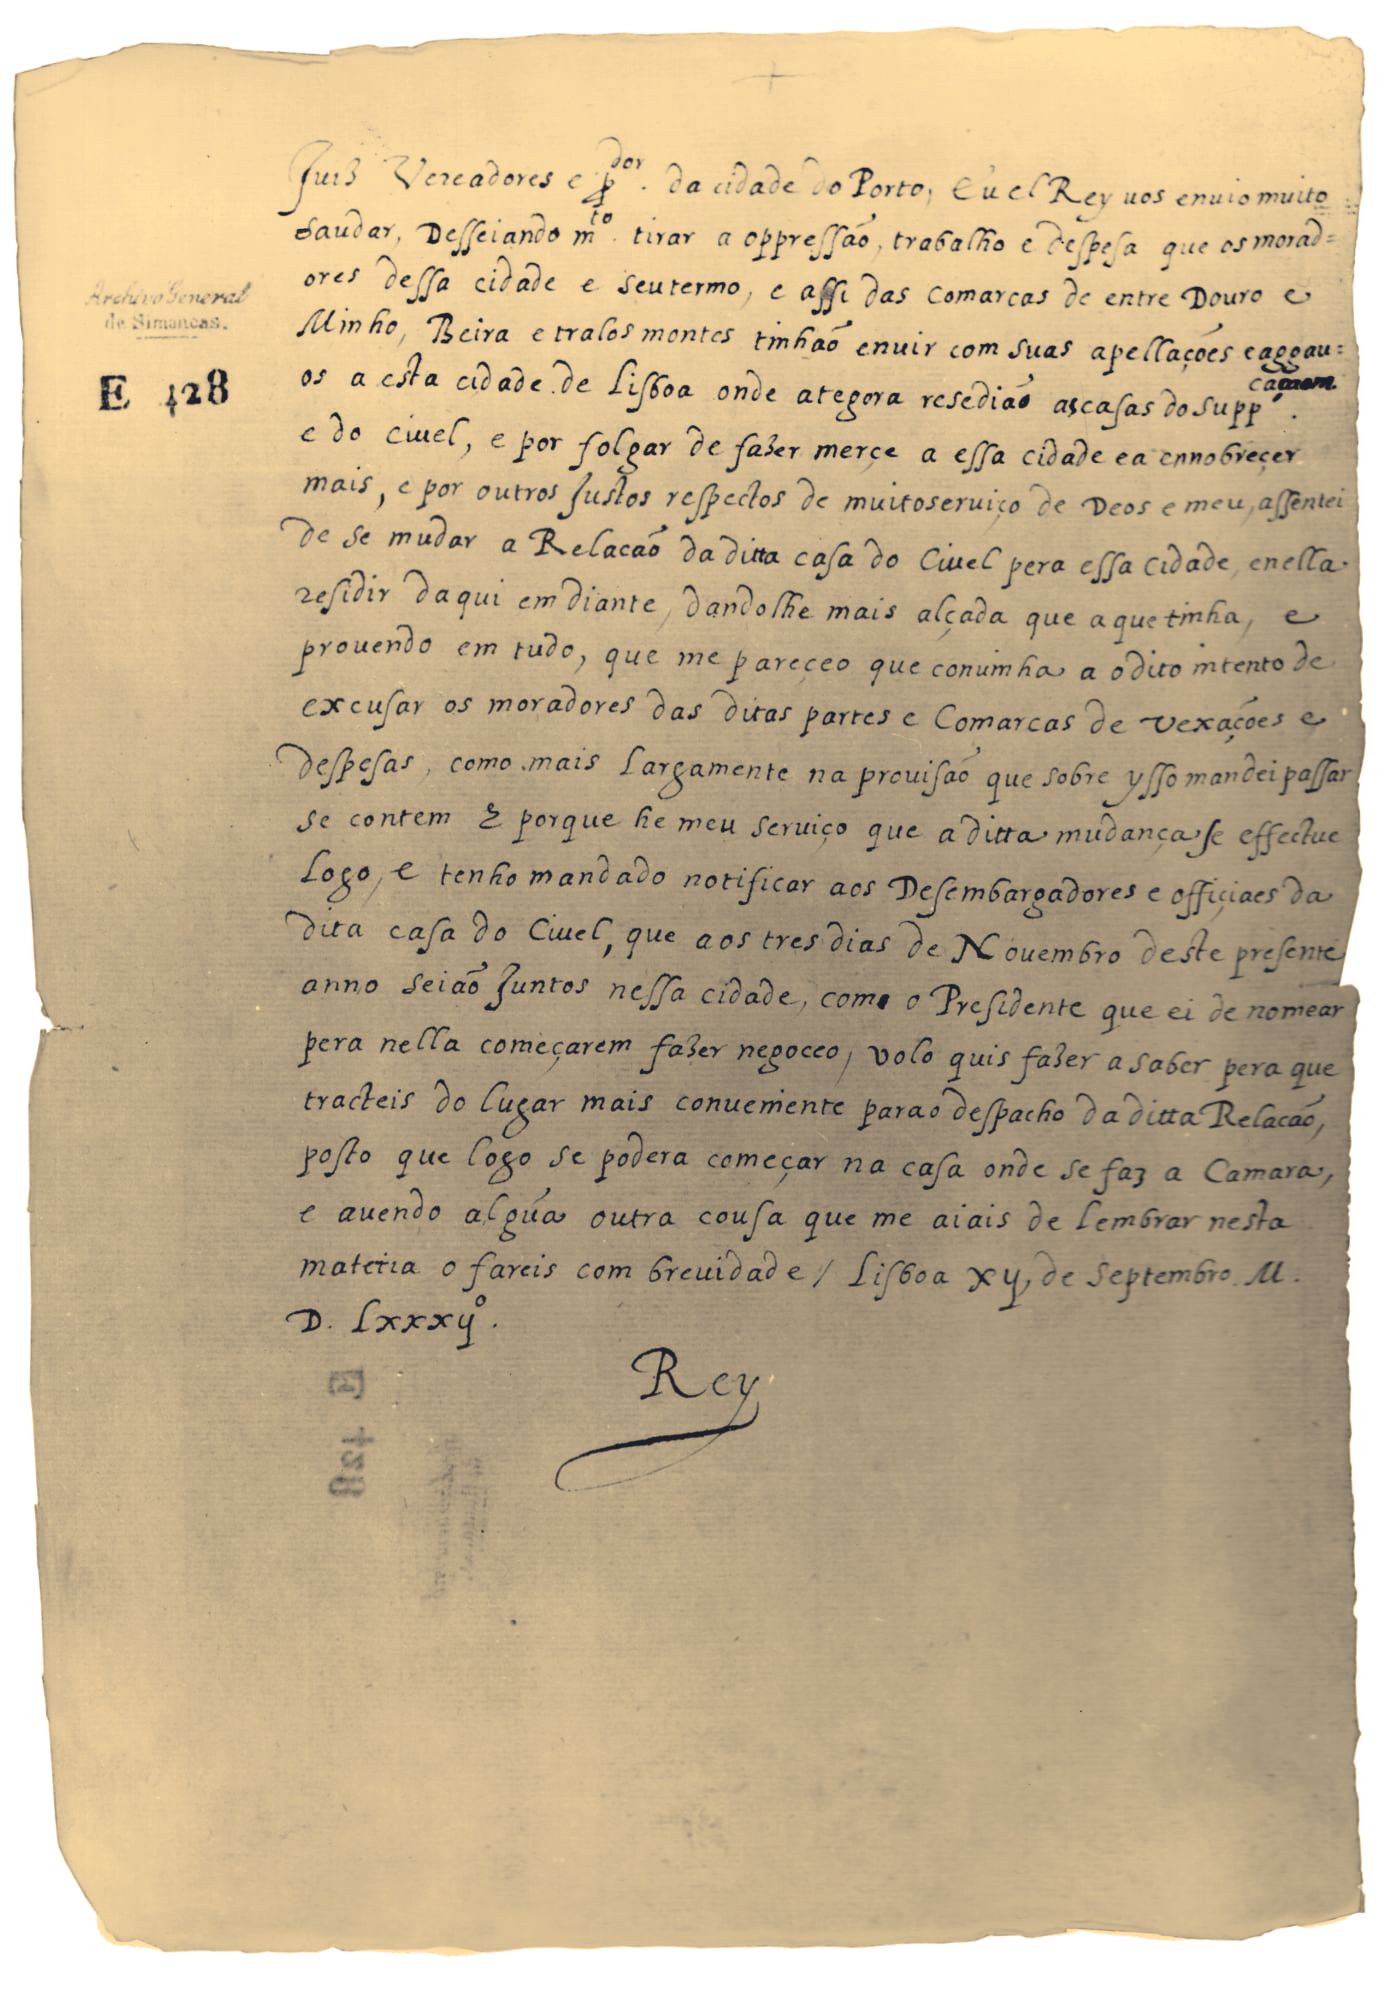 Juis Vereadores e p.dor da cidade do Porto, Eu el Rey uos enuio muito
saudar, Desseiando m.to tirar a oppressaõ, trabalho e despesa que os morad=
ores dessa cidade e seu termo, e assi das comarcas de entre Douro e
Archivo General
de Simancas.
Minho, Beira e tralos montes tinhaõ enuir com suas apellações e aggau=
E 428
os a esta cidade de Lisboa onde ategora resediaõ as casas do supp.
e do ciuel, e por folgar de fazer merçe a essa cidade e a ennobreçer
mais, e por outros Justos respectos de muito seruiço de Deos e meu, assentei
de se mudar a Relacaõ da ditta casa do Ciuel pera essa cidade, e nella
residir daqui em diante, dandolhe mais alçada que a que tinha, e
prouendo em tudo, que me pareçeo que conuinha a o dito intento de
excusar os moradores das ditas partes e Comarcas de vexações e
despesas, como mais largamente na prouisaõ que sobre ysso mandei passar
se contem & porque he meu seruiço que a ditta mudança se effectue
logo, e tenho mandado notificar aos Desembargadores e offiçiaes da
dita casa do Ciuel, que aos tres dias de Nouembro deste presente
anno seiaõ Juntos nessa cidade, como o Presidente que ei de nomear
pera nella começarem fazer negoceo, volo quis fazer a saber pera que
tracteis do lugar mais conueniente para o despacho da ditta Relacaõ,
posto que logo se podera começar na casa onde se faz a Camara,
e auendo algũa outra cousa que me aiais de lembrar nesta
materia o fareis com breuidade / Lisboa xij, de septembro. M.
D. Lxxxijº.
Rey
E 428